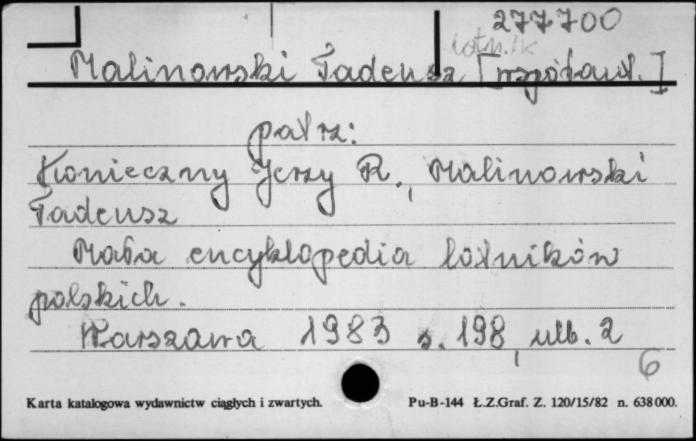 277700
lotn.
Malinowski Tadeusz [współaut.]
patrz:
Konieczny Jerzy R., Malinowski
Tadeusz
Mała encyklopedia lotników
polskich.
Warszawa 1983 s. 198, nlb. 2
6
Karta katalogowa wydawnictw ciągłych i zwartych. Pu-B-144 Ł.Z.Graf. Z. 120/15/82 n. 638000.